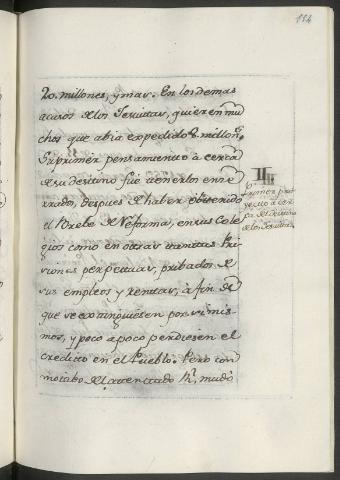 114
20. millones, y mas. En los demas
acasos de los Jesuitas, quieren mu
chos que abia expedido 8. millon.s
Su primer pensamiento à cerca
de su destino fue tenerlos ence
rrados despues de haber obtenido
el Brebe de Reforma, en sus Cole
gios como en otras tantas Pri
siones perpetuas, pribados de
sus empleos y rentas, à fin de
que se extinguiesen por si mis
mos, y poco a poco perdiesen el
credito en el Pueblo. Pero con
motibo del atentado R.l mudò
III
primer pro
yecto à cer
ca del destino
de los Jesuitas